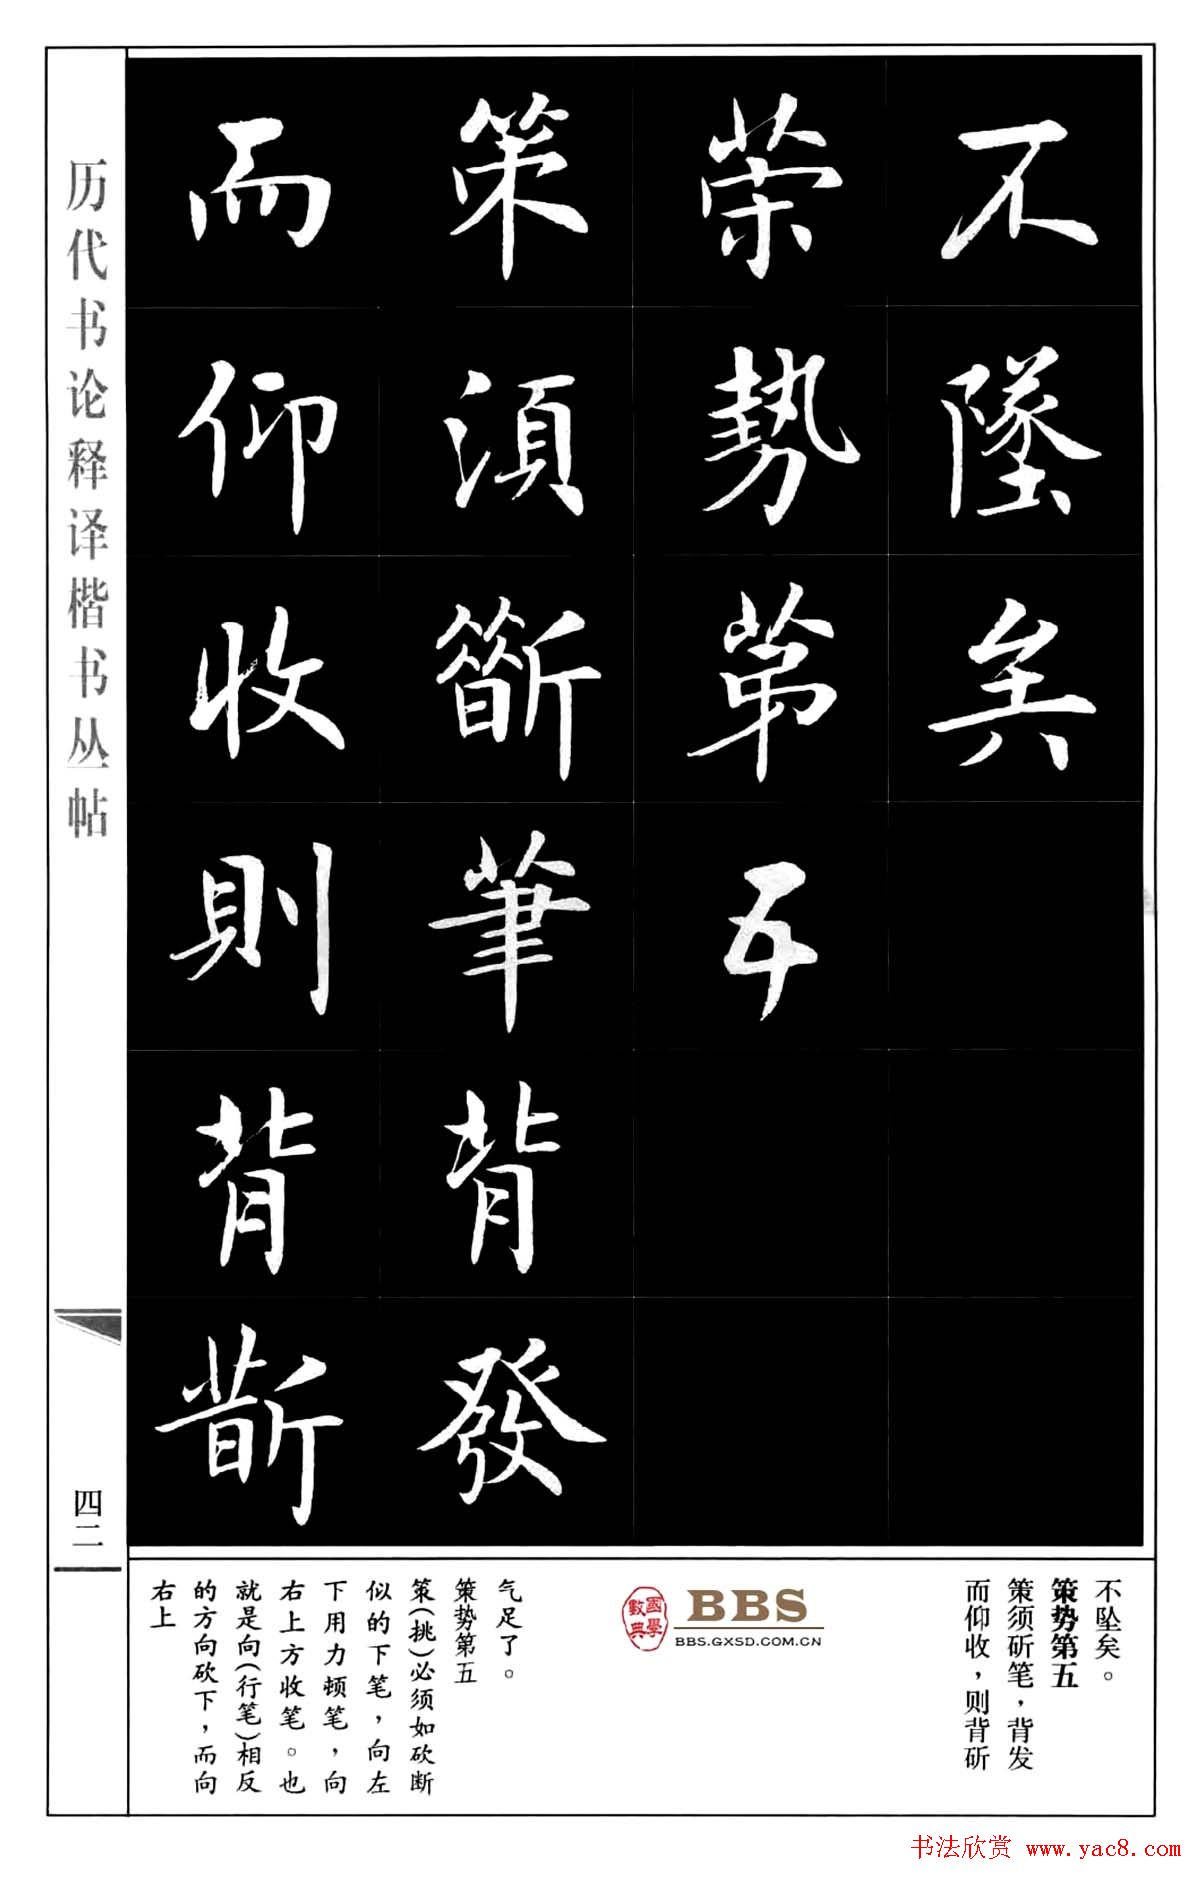 历代书论释译楷书丛帖
四二
不墜矣
策勢第五
策須斫筆背發
而仰收則背斫
不坠矣。
策势第五
策须斫笔，背发
而仰收，则背斫
國學
數典
BBS
BBS.GXSD.COM.CN
气足了。
策势第五
策(挑)必须如砍断
似的下笔，向左
下用力顿笔，向
右上方收笔。也
就是向(行笔)相反
的方向砍下，而向
右上
书法欣赏 www.yac8.com